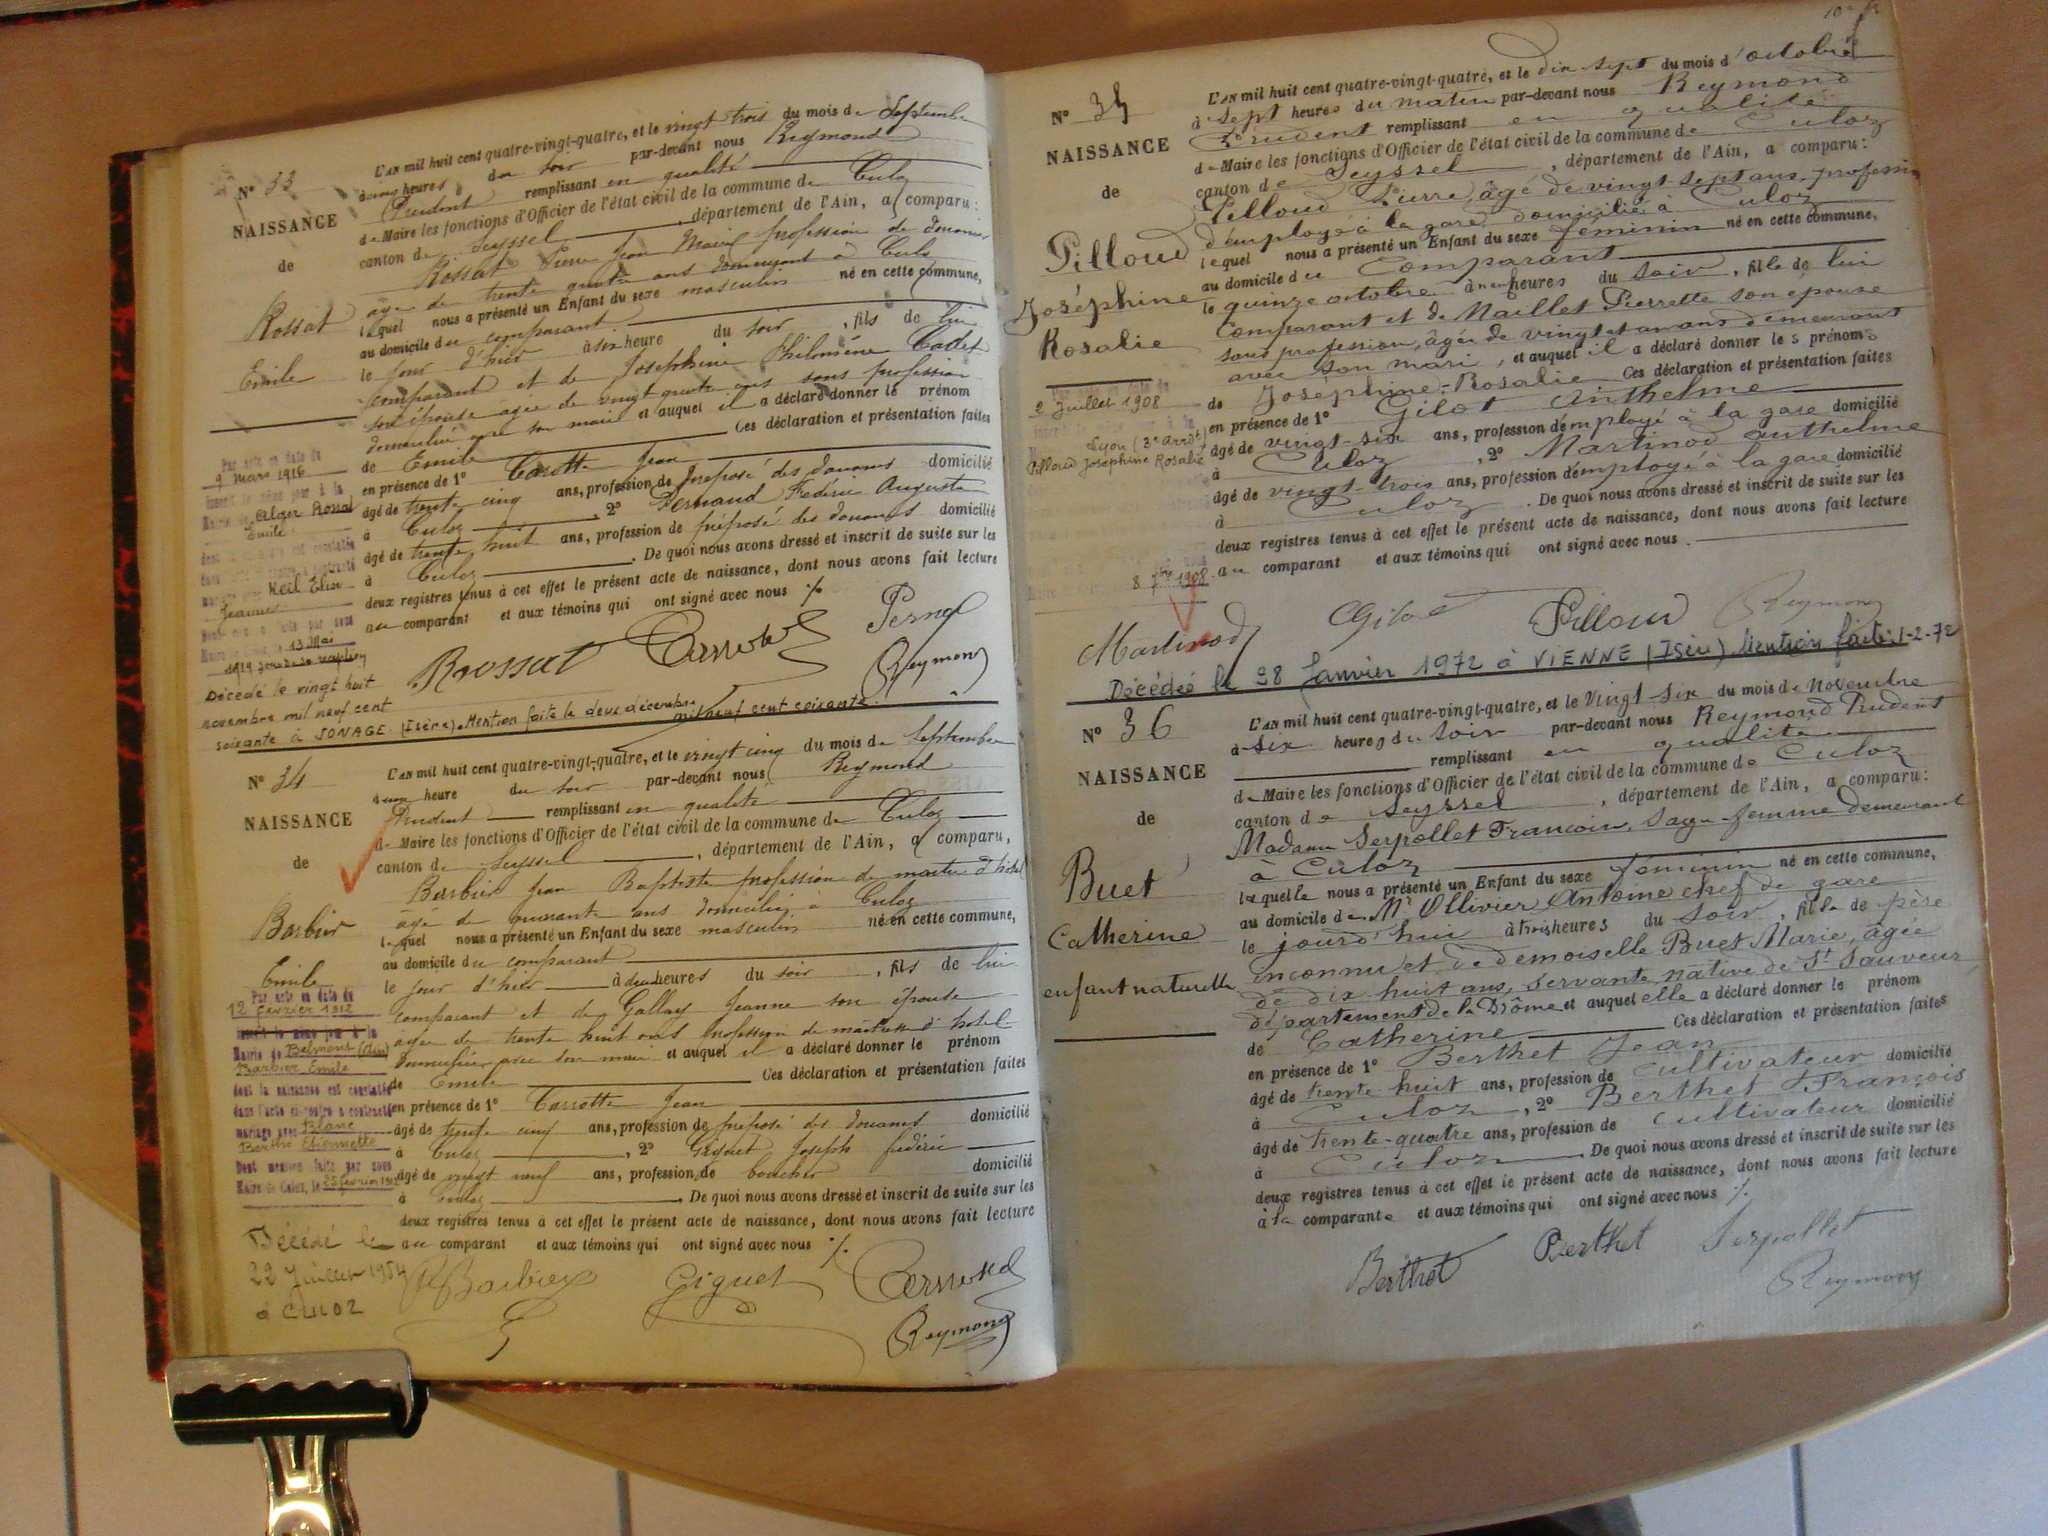 N° 33
NAISSANCE
de
Rossat
Emile
L'AN mil huit cent quatre-vingt-quatre, et le vingt trois du mois de Septembre
à heures du soir par-devant nous Reymond
Prudent remplissant en qualité
de Maire les fonctions d'Officier de l'état civil de la commune de Culoz
canton de Seyssel, département de l'Ain, a comparu:
Rossat Pierre Jean Marie profession de douanier
âgé de trente quatre ans demeurant à Culoz
lequel nous a présenté un Enfant du sexe masculin né en cette commune,
au domicile du comparant
le jour d'hier à six heure du soir, fils de lui
comparant et de Joséphine Philomène Cadet
son épouse agée de vingt quatre ans sans profession
domiciliée avec son mari et auquel il a déclaré donner le prénom
de Emile Ces déclaration et présentation faites
en présence de 1° Carrotte Jean
âgé de trente cinq ans, profession de préposé des douanes domicilié
à Culoz, 2° Pernaud Frédéric Auguste
âgé de trente huit ans, profession de préposé des douanes domicilié
à Culoz. De quoi nous avons dressé et inscrit de suite sur les
deux registres tenus à cet effet le présent acte de naissance, dont nous avons fait lecture
au comparant et aux témoins qui ont signé avec nous
Par acte en date du
9 mars 1916
inscrit le même jour à la
Mairie de Alger Rossat
Emile
Keil Elise
Jeanne
13 Mai
1919
Rossat
Reymond
Décédé le vingt huit
novembre mil neuf cent
soixante à JONAGE (Isère). Mention faite le deux décembre
mil neuf cent soixante.
N° 34
NAISSANCE
de
Barbier
Emile
L'AN mil huit cent quatre-vingt-quatre, et le vingt cinq du mois de Septembre
à une heure du soir par-devant nous Reymond
Prudent remplissant en qualité
de Maire les fonctions d'Officier de l'état civil de la commune de Culoz
canton de Seyssel, département de l'Ain, a comparu,
Barbier Jean Baptiste profession de maitre d'hôtel
âgé de quarante ans domicilié à Culoz
lequel nous a présenté un Enfant du sexe masculin né en cette commune,
au domicile du comparant
le jour d'hier à deux heures du soir, fils de lui
comparant et de Gallay Jeanne son épouse
agée de trente huit ans profession de maitresse d'hotel
domiciliée avec son mari et auquel il a déclaré donner le prénom
de Emile Ces déclaration et présentation faites
en présence de 1° Carrotte Jean
âgé de trente cinq ans, profession de préposé des douanes domicilié
à Culoz, 2° Giguet Joseph frédéric
âgé de vingt neuf ans, profession de boucher domicilié
à Culoz. De quoi nous avons dressé et inscrit de suite sur les
deux registres tenus à cet effet le présent acte de naissance, dont nous avons fait lecture
au comparant et aux témoins qui ont signé avec nous
Par acte en date du
12 février 1912
inscrit le même jour à la
Mairie de Belmont (Ain)
Barbier Emile
dont la naissance est constatée
dans l'acte ci-contre a contracté
mariage avec Blanc
Berthe Etiennette
Dont mention faite par nous
Maire de Culoz, le 25 février 1912
Décédé le
22 Juillet 1954
à CULOZ
Barbier Giguet
Reymond
N° 35
NAISSANCE
de
Pilloud
Joséphine
Rosalie
L'AN mil huit cent quatre-vingt-quatre, et le dix sept du mois d'octobre
à sept heures du matin par-devant nous Reymond
Prudent remplissant en qualité
de Maire les fonctions d'Officier de l'état civil de la commune de Culoz
canton de Seyssel, département de l'Ain, a comparu:
Pilloud Pierre, âgé de vingt sept ans, profession
d'employé à la gare, domicilié à Culoz
lequel nous a présenté un Enfant du sexe féminin né en cette commune,
au domicile du Comparant
le quinze octobre à neuf heures du soir, fille de lui
Comparant et de Maillet Pierrette son épouse
sans profession, âgée de vingt et un ans demeurant
avec son mari, et auquel il a déclaré donner les prénoms
de Joséphine-Rosalie Ces déclaration et présentation faites
en présence de 1° Gilot Anthelme
âgé de vingt-six ans, profession d'employé à la gare domicilié
à Culoz, 2° Martinod Anthelme
âgé de vingt-trois ans, profession d'employé à la gare domicilié
à Culoz. De quoi nous avons dressé et inscrit de suite sur les
deux registres tenus à cet effet le présent acte de naissance, dont nous avons fait lecture
au comparant et aux témoins qui ont signé avec nous.
2 Juillet 1908
Lyon (3e Arrdt)
Pilloud Joséphine Rosalie
8 7bre 1908
Martinod Gilot Pilloud Reymond
Décédée le 28 Janvier 1972 à VIENNE (Isère) Mention faite: 1-2-72
N° 36
NAISSANCE
de
Buet
Catherine
enfant naturelle
L'AN mil huit cent quatre-vingt-quatre, et le Vingt six du mois de Novembre
à six heures du Soir par-devant nous Reymond Prudent
remplissant en qualité
de Maire les fonctions d'Officier de l'état civil de la commune de Culoz
canton de Seyssel, département de l'Ain, a comparu:
Madame Serpollet Francoise, sage femme demeurant
à Culoz
laquelle nous a présenté un Enfant du sexe féminin né en cette commune,
au domicile de Mr Ollivier Antoine chef de gare
le jourd'hui à trois heures du soir, fille de père
inconnu et de demoiselle Buet Marie, âgée
de dix-huit ans, servante, native de St Sauveur
département de la Drôme et auquel elle a déclaré donner le prénom
de Catherine Ces déclaration et présentation faites
en présence de 1° Berthet Jean
âgé de trente huit ans, profession de cultivateur domicilié
à Culoz, 2° Berthet François
âgé de trente-quatre ans, profession de cultivateur domicilié
à Culoz. De quoi nous avons dressé et inscrit de suite sur les
deux registres tenus à cet effet le présent acte de naissance, dont nous avons fait lecture
à la comparante et aux témoins qui ont signé avec nous
Berthet Berthet Serpollet
Reymond